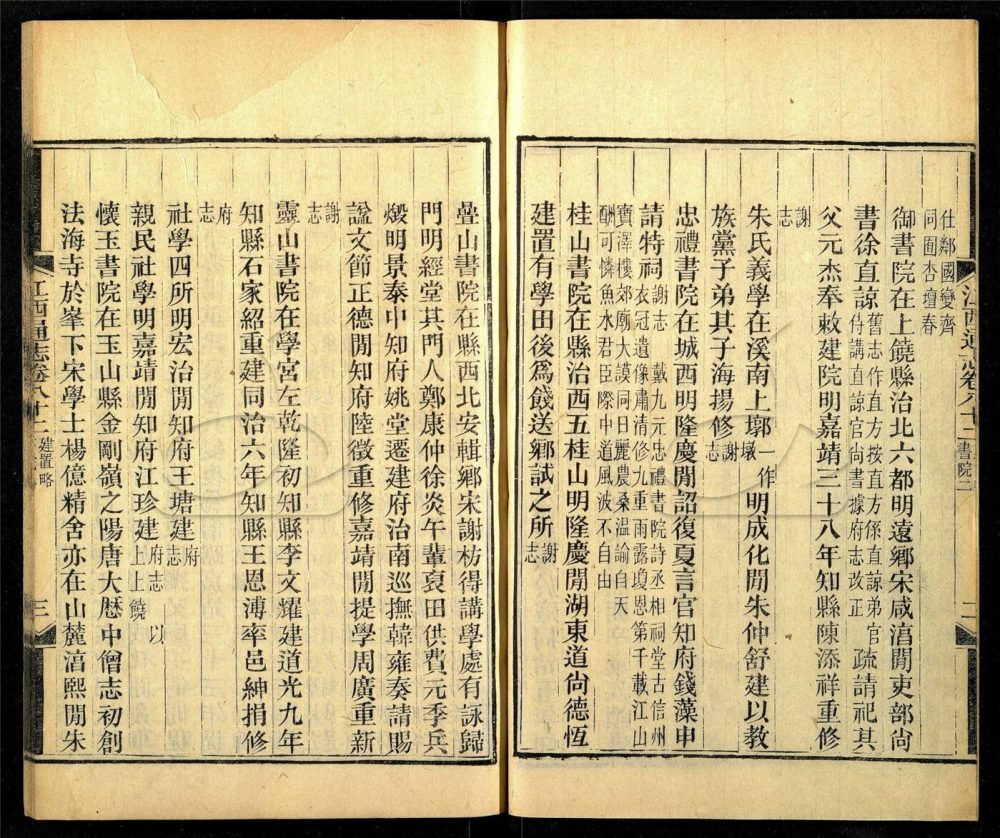 仕鄰國變齊
同囿杏壇春
御書院在上饒縣治北六都明遠鄉宋咸淳閒吏部尙
書徐直諒舊志作直方按直方係直諒弟官
侍講直諒官尙書據府志改正疏請祀其
父元杰奉敕建院明嘉靖三十八年知縣陳添祥重修
謝
志
朱氏義學在溪南上墎一作
壕明成化閒朱仲舒建以教
族黨子弟其子海揚修謝
志
忠禮書院在城西明隆慶閒詔復夏言官知府錢藻申
請特祠謝志 戴九元忠禮書院詩丞相祠堂古信州
衣冠遺像肅清修九重雨露瓊恩第千載江山
寶澤樓郊廟大謨同日麗農桑温諭自天
酬可憐魚水君臣際中道風波不自由
桂山書院在縣治西五桂山明隆慶閒湖東道尙德恆
建置有學田後爲餞送鄉試之所謝
志
江西通志卷八十二 書院二 二
疊山書院在縣西北安輯鄉宋謝枋得講學處有詠歸
門明經堂其門人鄭康仲徐炎午輩裒田供費元季兵
燬明景泰中知府姚堂遷建府治南巡撫韓雍奏請賜
諡文節正德閒知府陸徵重修嘉靖閒提學周廣重新
謝
志
靈山書院在學宮左乾隆初知縣李文耀建道光九年
知縣石家紹重建同治六年知縣王恩溥率邑紳捐修
府
志
社學四所明宏治閒知府王塘建府
志
親民社學明嘉靖閒知府江珍建府志 以
上上饒
懷玉書院在玉山縣金剛嶺之陽唐大歷中僧志初創
法海寺於峯下宋學士楊億精舍亦在山麓淳熙閒朱
江西通志卷八十二 建置略 三